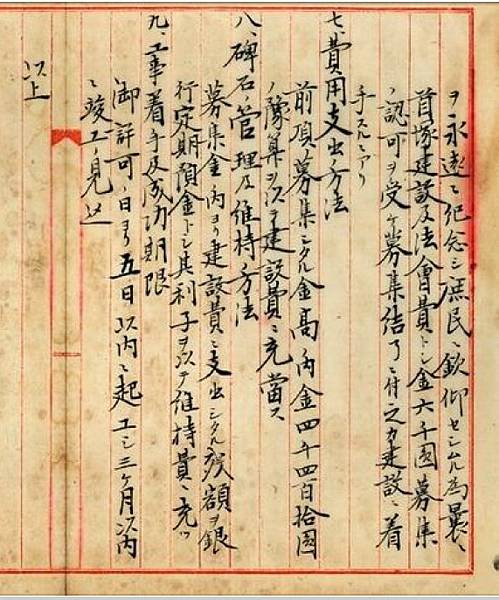 ヲ永遠ニ紀念シ庶民ニ欽仰セシムル為曩ニ
首塚建設及法會費トシ金六千圓募集
ノ認可ヲ受ケ募集結了ニ付之カ建設ニ着
手スルニアリ
七、費用支出方法
前項募集シタル金高ノ内金四千四百拾圓
ノ豫算ヲ以テ建設費ニ充當ス
八、碑石ノ管理及維持方法
募集金ノ内ヨリ建設費ニ支出シタル残額ヲ銀
行定期預金トシ其利子ヲ以テ維持費ニ充ツ
九、工事着手及成功期限
御許可ノ日ヨリ五日以内ニ起工シ三ヶ月以内
ニ竣工ノ見込
以上